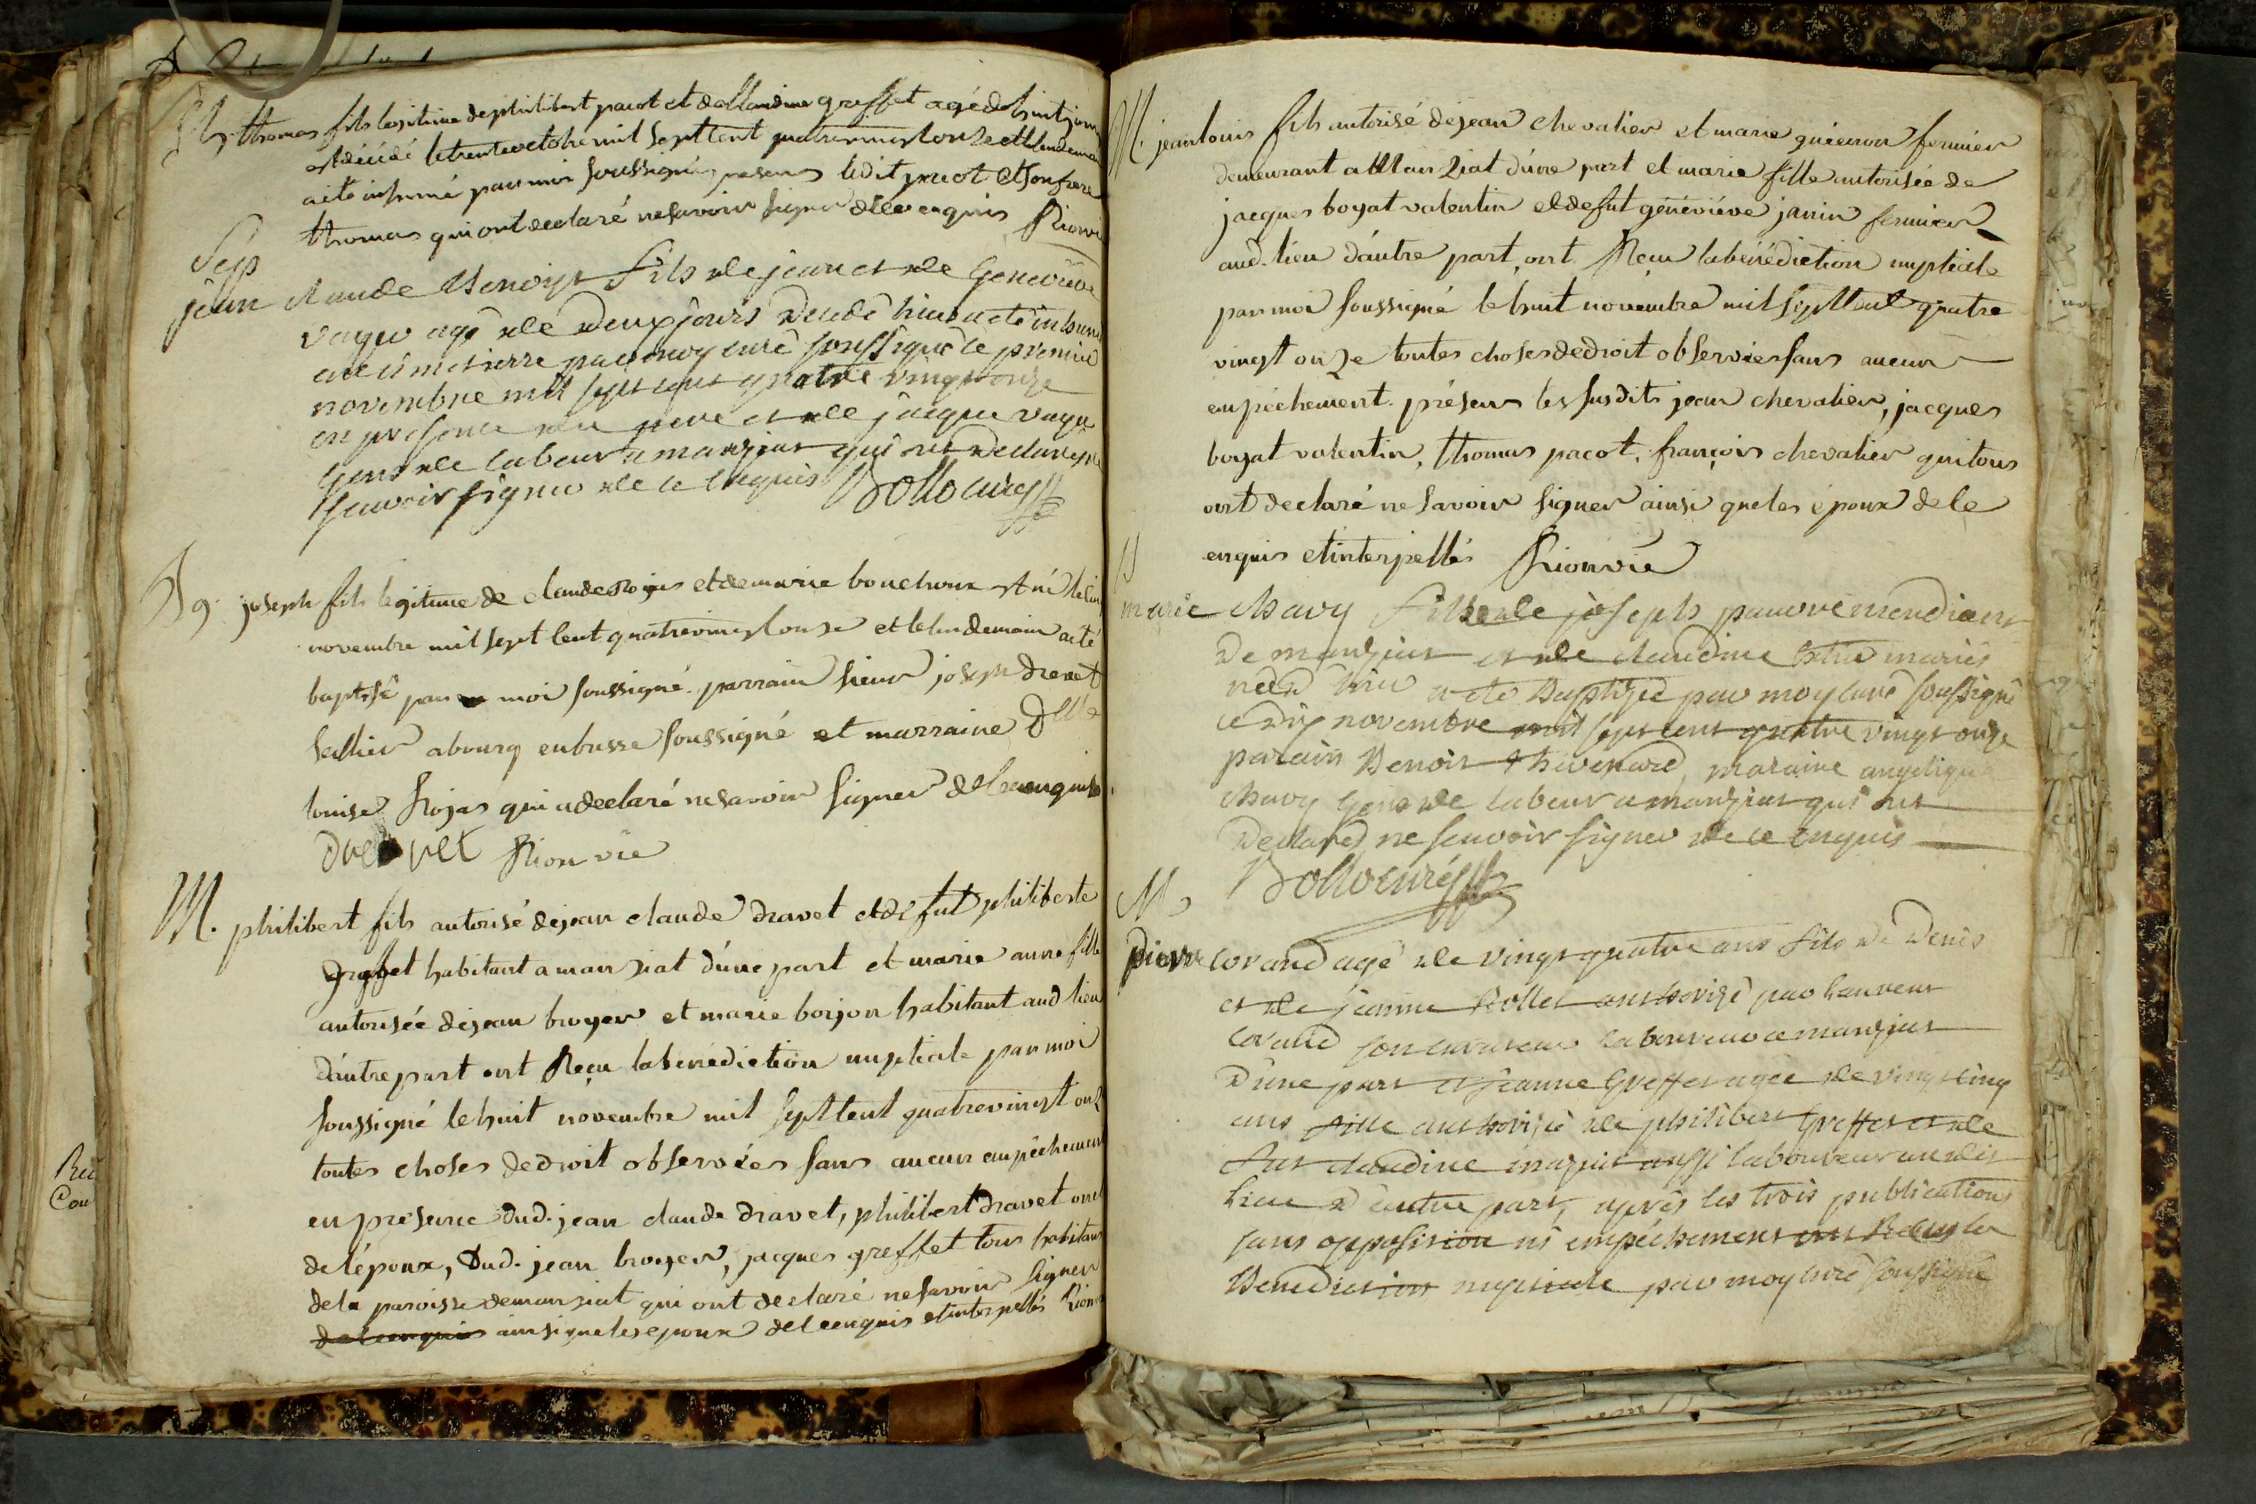 thomas fils legitime de philibert pacot et de Claudine greffet agé de huit jours
est décédé le trente octobre mil sept cent quatrevingt onze et le lendemain
a été inhumé par moi soussigné, presens ledit pacot et son frere
thomas qui ont declaré ne savoir signer de ce enquis Rionvie
Sep
jean claude Benoist fils de jean et de Genevieve
age de deux jours decede hier a ete inhume
au cimetierre par moy curé soussigné le premier
novembre mil sept cent quatre vingt onze
en presence du pere et de jacque
gens de labeur a manziat qui ont declaré ne
scavoir signer de ce enquis Bollo curé
joseph fils légitime de claude Rojas et de marie bouchoux est né le cinq
novembre mil sept cent quatrevingt onze et le lendemain a été
baptisé par moi soussigné. parrain sieur joseph drevet
sellier a bourg en bresse soussigné et marraine Dlle
louise Rojas qui a declaré ne savoir signer de ce enquise
drevet Rionvie
M. philibert fils autorisé de jean claude dravet et de fut philiberte
greffet habitant a manziat d'une part et marie anne fille
autorisée de jean broyer et marie borjon habitant aud lieu
d'autre part ont Reçu la bénédiction nuptiale par moi
soussigné le huit novembre mil sept cent quatrevingt onze
toutes choses de droit observées sans aucun empêchement
en présence dud. jean claude dravet, philibert dravet oncle
de l'époux, Dud. jean broyer, jacques greffet tous habitans
de la paroisse de manziat qui ont declaré ne savoir signer
de ce enquis ainsi que les epoux de ce enquis et interpellés Rionvie
M. jean louis fils autorisé de jean chevalier et marie guérin fermier
demeurant a Manziat d'une part et marie fille autorisée de
jacques boyat valentin et de fut géneviéve janin fermier
aud. lieu d'autre part, ont Reçu la bénédiction nuptiale
par moi soussigné le huit novembre mil sept cent quatre
vingt onze toutes choses de droit observées sans aucun
empêchement. présens les susdits jean chevalier, jacques
boyat valentin, thomas pacot, françois chevalier qui tous
ont declaré ne savoir signer ainsi que les époux de ce
enquis et interpellés Rionvie
B
marie chavy fille de joseph pauvre mendiant
de manziat et de claudine mariés
née d'hier a ete baptizée par moy curé soussigné
le dix novembre mil sept cent quatre vingt onze
parain Benoit thevenard, maraine angelique
chavy gens de labeur a manziat qui ont
declaré ne scavoir signer de ce enquis
Bollo curé
M
pierre Corand agé de vingt quatre ans fils de Denis
et de jeanne Rollet authorizé par
Corand son curateur laboureur a manziat
d'une part et jeanne Greffet agée de vingt cinq
ans fille authorizée de philibert Greffet et de
fut claudine maziat aussi laboureur au dit
lieu d'autre part, aprés les trois publications
sans opposition ni empéchement ont Recu la
Benediction nuptiale par moy curé soussigné
Rec
Cou